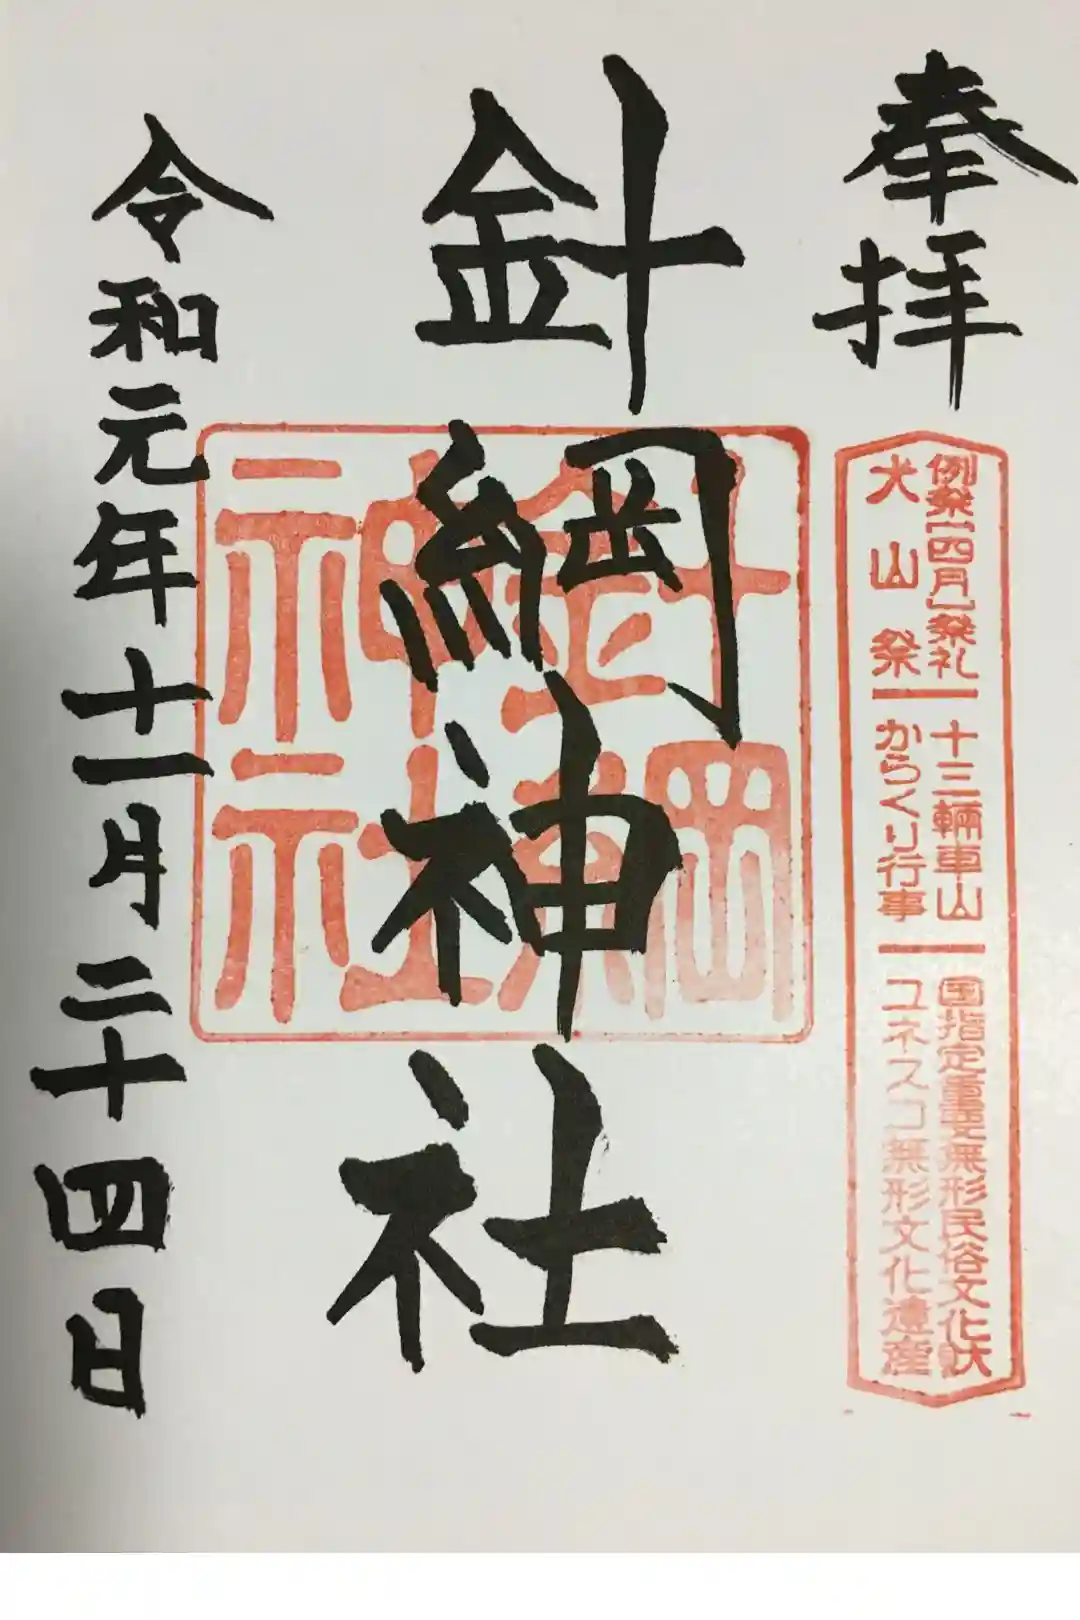 奉拝
例祭【四月】祭礼
犬山祭
十三輛車山
からくり行事
国指定重要無形民俗文化財
ユネスコ無形文化遺産
針綱神社
針綱
神社
令和元年十一月二十四日